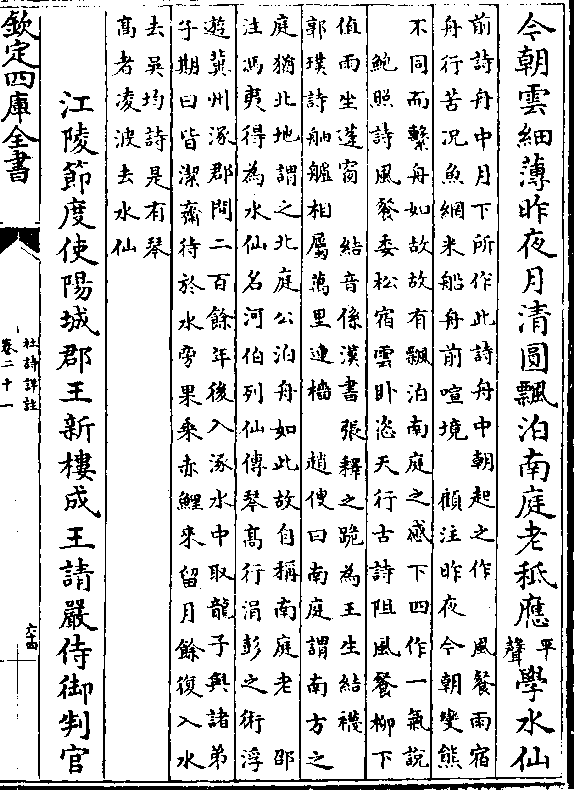 今朝雲細薄昨夜月清圓飄泊南庭老秖應平聲學水仙
前詩舟中月下所作此詩舟中朝起之作 風餐雨宿
舟行苦况魚網米船舟前喧境 顧注昨夜今朝變態
不同而繫舟如故故有飄泊南庭之感下四作一氣說
鮑照詩風餐委松宿雲卧恣天行古詩阻風餐柳下
值雨坐蓬窗 結音係漢書張釋之跪為王生結襪
郭璞詩舳艫相屬萬里連檣 趙傁曰南庭謂南方之
庭猶北地謂之北庭公泊舟如此故自稱南庭老 邵
注馮夷得為水仙名河伯列仙傳琴髙行涓彭之術浮
遊冀州涿郡間二百餘年後入涿水中取龍子與諸弟
子期曰皆潔齋待於水旁果乘赤鯉來留月餘復入水
去吳均詩是有琴
髙者凌波去水仙
江陵節度使陽城郡王新樓成王請嚴侍御判官
欽定四庫全書
杜詩詳註
卷二十一